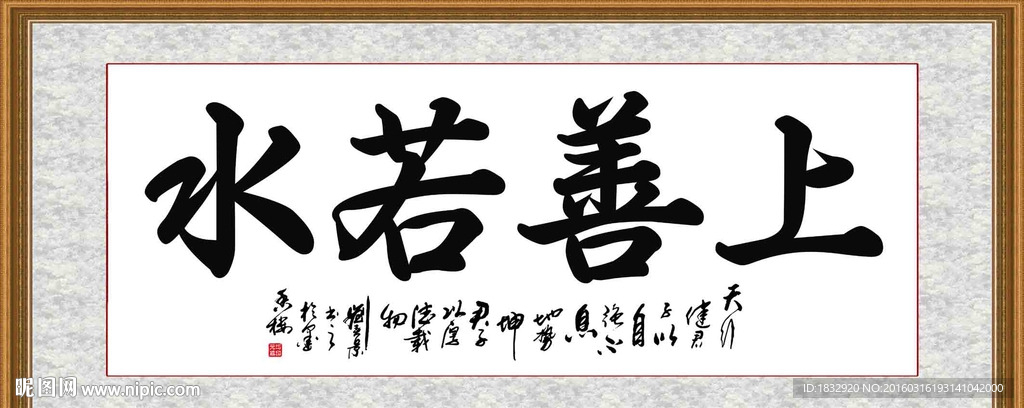 上善若水
天行
健君
子以
自
强不
息
地势
坤
君子
以厚
德载
物
书之
於墨
香楼
昵图网 www.nipic.com
ID:1832920 NO:20160316193141042000